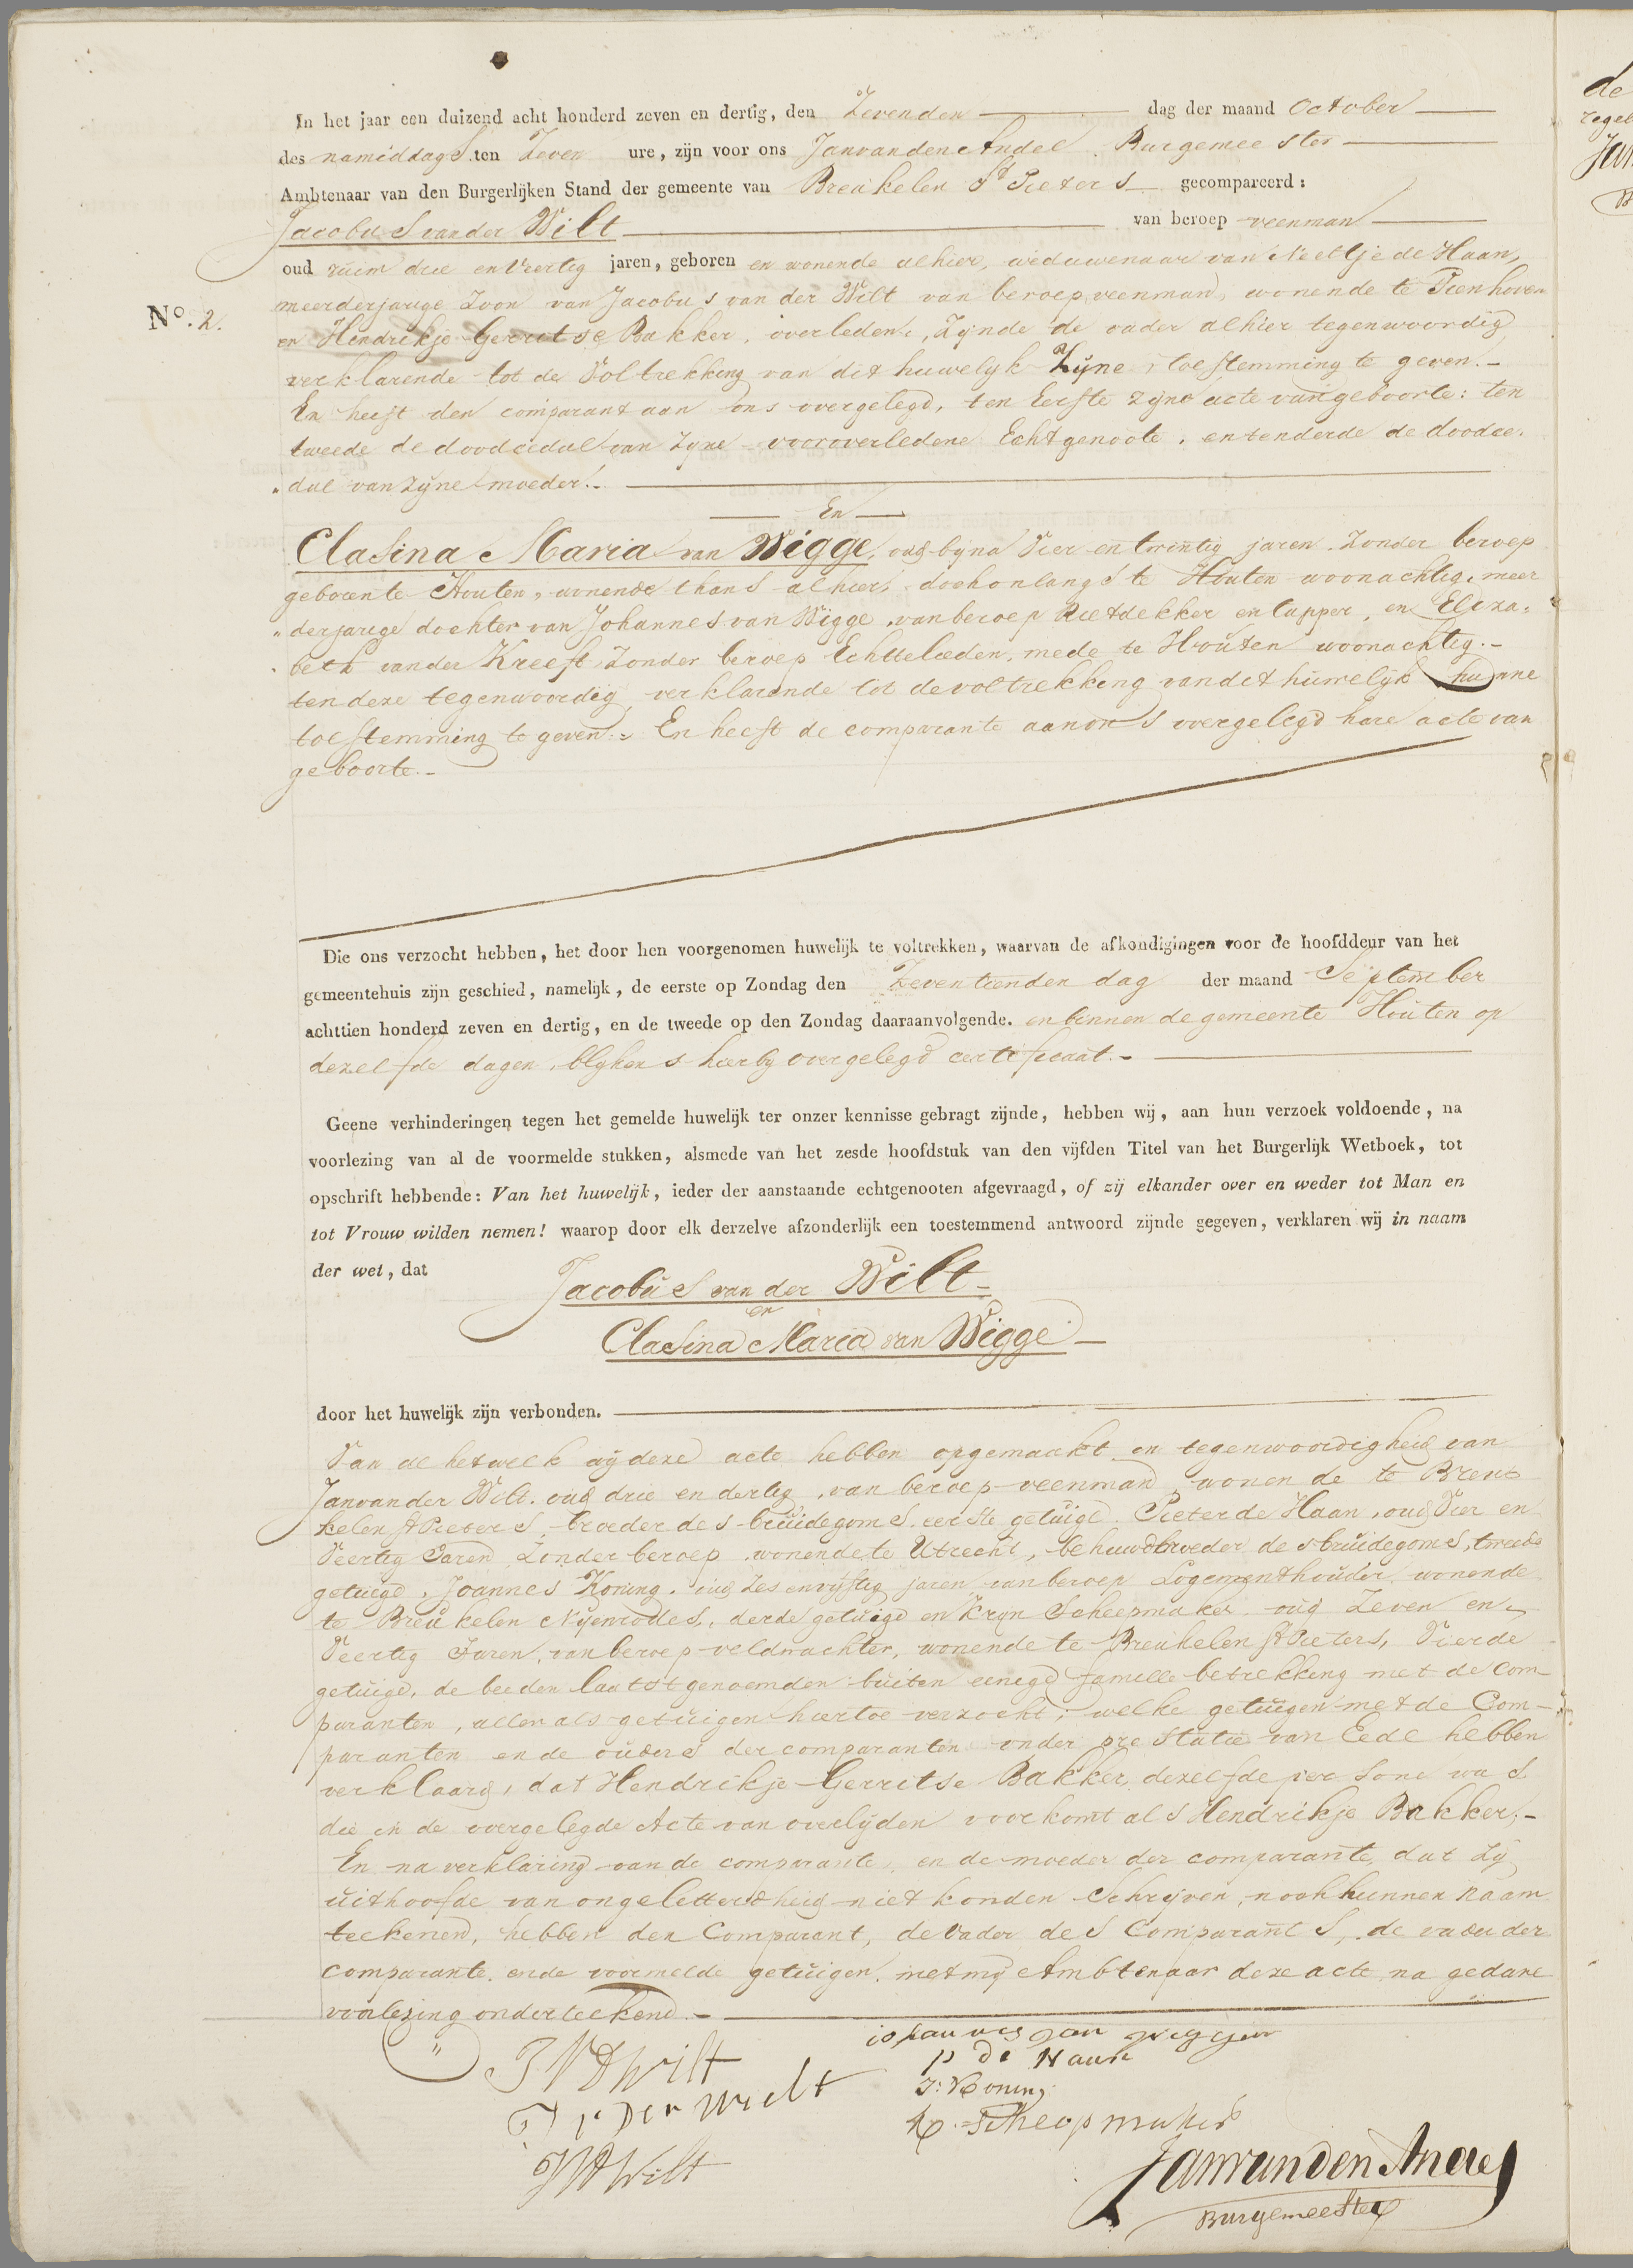 In het jaar een duizend acht honderd zeven en dertig, den Zevenden dag der maand October
des namiddags ten Zeven ure, zijn voor ons Jan van den Andel Burgemeester
Ambtenaar van den Burgerlijken Stand der gemeente van Breukelen St Pieters gecompareerd:
Jacobus van der Wilt van beroep veenman
oud ruim drie en veertig jaren, geboren en wonende alhier, weduwenaar van Neeltje de Haan,
meerderjarige Zoon van Jacobus van der Wilt van beroep veenman, wonende te Tienhoven
No. 2.
en Hendrikje Gerritse Bakker, overleden, Zynde de vader alhier tegenwoordig,
verklarende tot de Voltrekking van dit huwelyk Zyne toestemming te geven.-
En heeft den comparant aan ons overgelegd, ten Eerste zyne acte van geboorte: ten
tweede de doodcedul van zyne vooroverledene Echtgenoote, en ten derde de doodce-
"dul van zyne moeder.-
En
Clasina Maria van Wigge, oud byna Vier en twintig jaren. Zonder beroep
geboren te Houten, wonende thans alhier, doch onlangs te Houten woonachtig, meer
"derjarige dochter van Johannes van Wigge, van beroep Rietdekker en tapper, en Eliza-
beth van der Kreeft, Zonder beroep Echtelieden, mede te Houten woonachtig.-
ten deze tegenwoordig, verklarende tot de voltrekking van dit huwelyk hunne
toestemming te geven.- En heeft de comparante aan ons overgelegd hare acte van
geboorte.-
Die ons verzocht hebben, het door hen voorgenomen huwelijk te voltrekken, waarvan de afkondigingen voor de hoofddeur van het
gemeentehuis zijn geschied, namelijk, de eerste op Zondag den Zeventienden dag der maand September
achttien honderd zeven en dertig, en de tweede op den Zondag daaraanvolgende. en binnen de gemeente Houten op
dezelfde dagen, blykens hierby overgelegd certificaat.-
Geene verhinderingen tegen het gemelde huwelijk ter onzer kennisse gebragt zijnde, hebben wij, aan hun verzoek voldoende, na
voorlezing van al de voormelde stukken, alsmede van het zesde hoofdstuk van den vijfden Titel van het Burgerlijk Wetboek, tot
opschrift hebbende: Van het huwelijk, ieder der aanstaande echtgenooten afgevraagd, of zij elkander over en weder tot Man en
tot Vrouw wilden nemen! waarop door elk derzelve afzonderlijk een toestemmend antwoord zijnde gegeven, verklaren wij in naam
der wet, dat Jacobus van der Wilt
en
Clasina Maria van Wigge
door het huwelijk zijn verbonden.
Van al hetwelk wy deze acte hebben opgemaakt in tegenwoordigheid van
Jan van der Wilt, oud drie en dertig, van beroep veenman, wonende te Breu
kelen St Pieters, broeder des bruidegoms eerste getuige. Pieter de Haan, oud Vier en
Veertig Jaren Zonder beroep wonende te Utrecht, behuwdbroeder des bruidegoms, tweede
getuige, Joannes Koning, oud Zes en vyftig jaren van beroep Logementhouder, wonende
te Breukelen Nyenrodes, derde getuige en Kryn Scheepmaker oud Zeven en
Veertig Jaren, van beroep veldwachter, wonende te Breukelen St Pieters, Vierde
getuige, de beeden laatstgenoemden buiten eenige famille betrekking met de Com-
paranten, allen als getuigen hiertoe verzocht; welke getuigen met de Com-
paranten en de ouders der comparanten onder prestatie van Eede hebben
verklaard, dat Hendrikje Gerritse Bakker, dezelfde persone was
die in de overgelegde Acte van overlyden voorkomt als Hendrikje Bakker,-
En na verklaring van de comparante, en de moeder der comparante, dat Zy
uithoofde van ongeletterdheid niet konden Schryven, noch hunnen naam
teekenen, hebben den Comparant, de Vader des Comparants, de vader der
comparante, en de voormelde getuigen, met my Ambtenaar deze acte na gedane
voorlezing onderteekend.-
J V D Wilt
iohannes van wiggen
p de Haan
J v Der Wielt
J: Koning
K. Scheepmaker
J V D Wilt
Jan van den Andel
Burgemeester
de
Jan